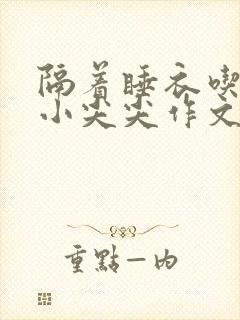 隔着睡衣喫
小尖尖作文
重點一内